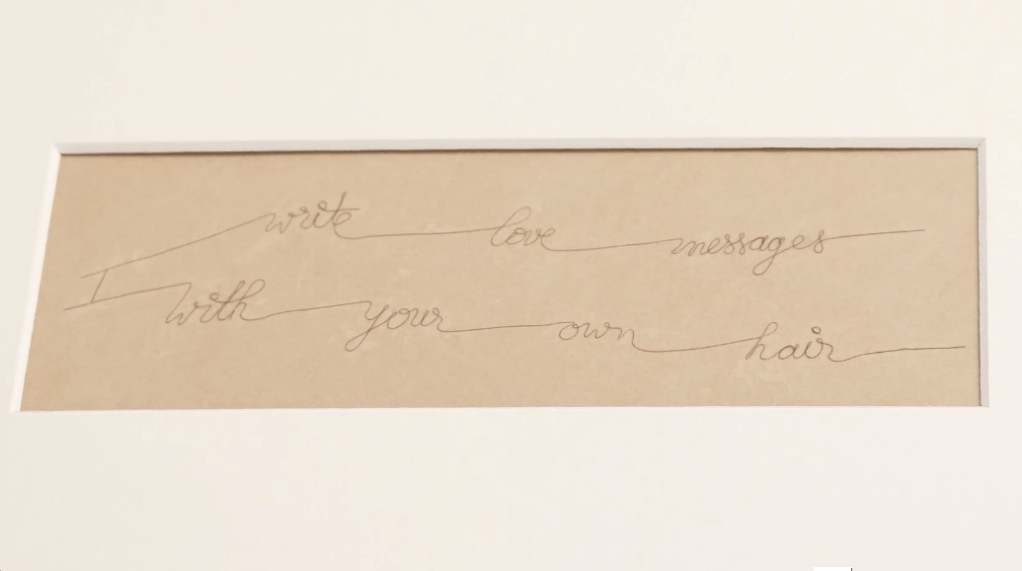 I write love messages
with your own hair